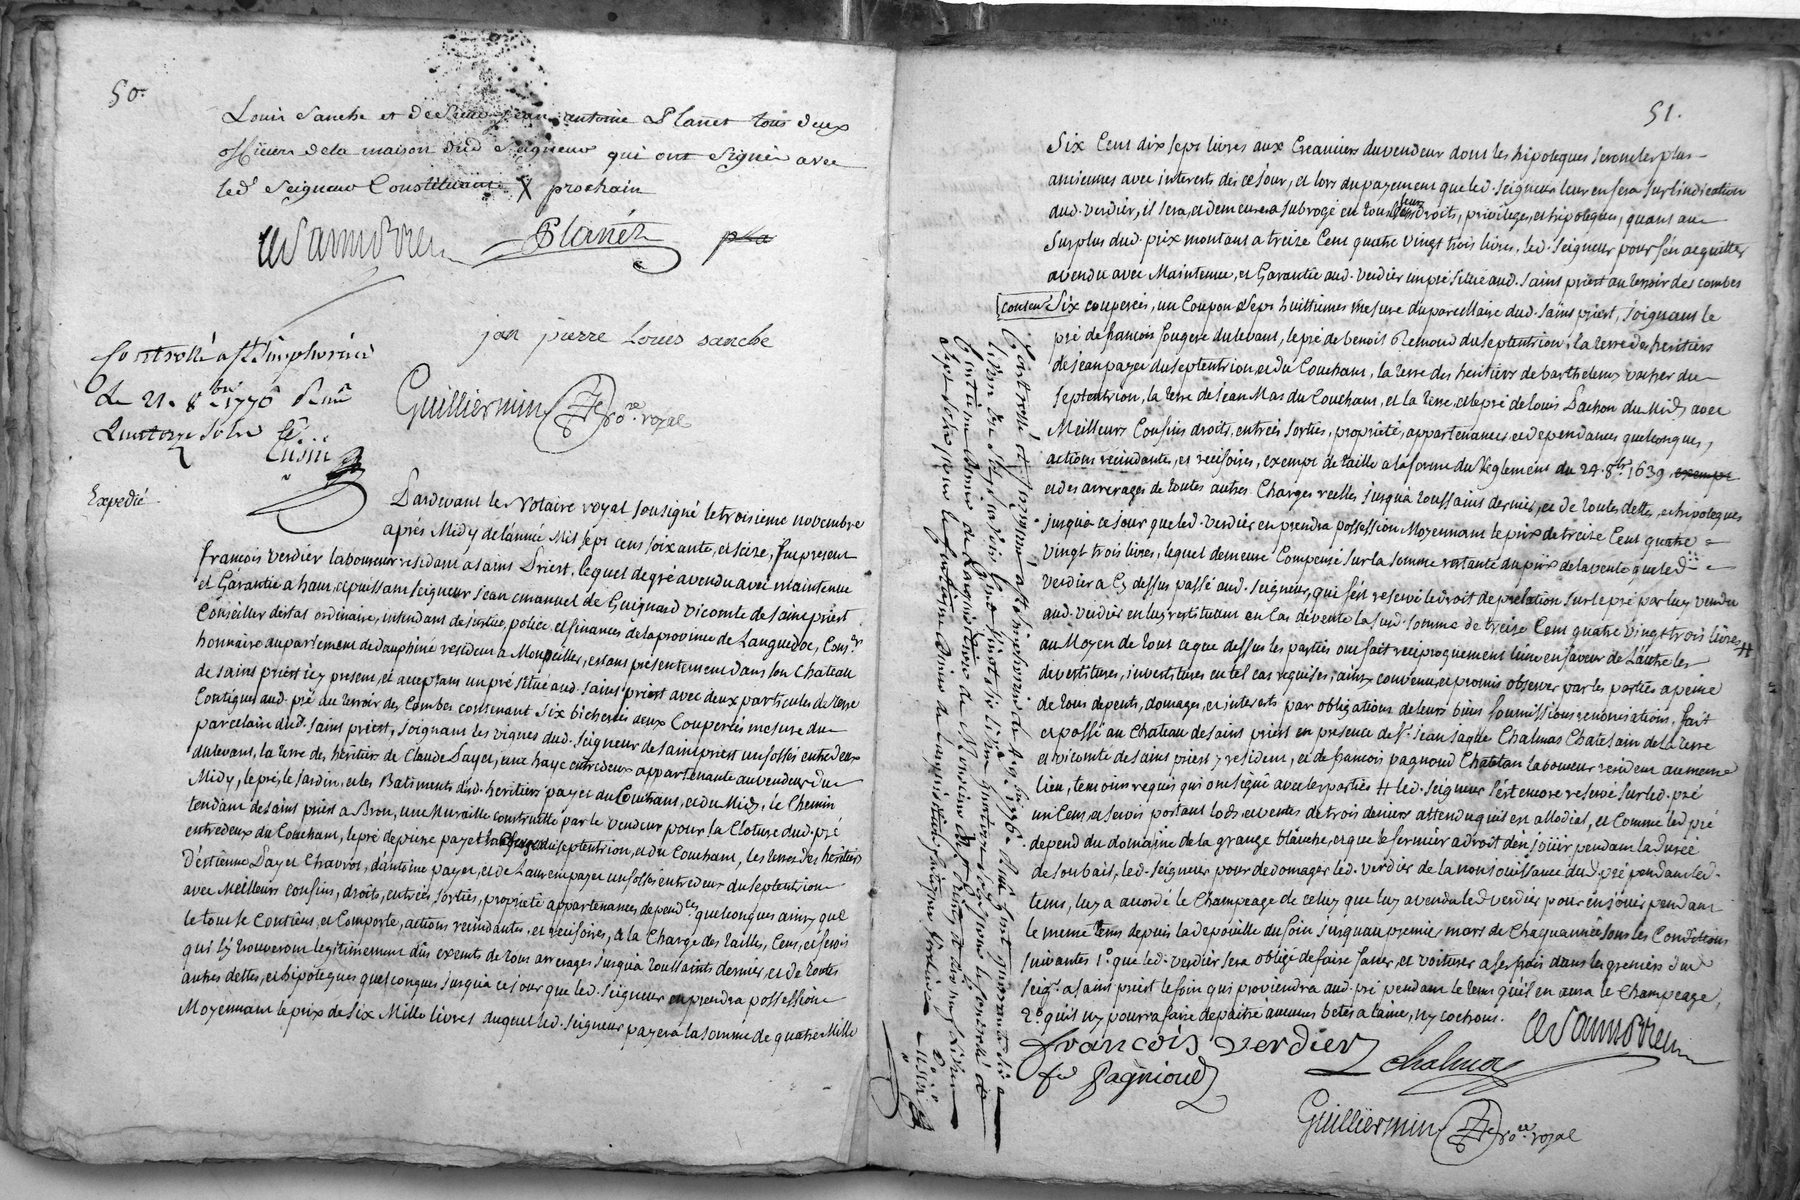 50.
Louis Sanche et de Sieur Jean antoine Planet tous deux
officiers de la maison dud Seigneur qui ont signés avec
led. Seigneur Constituant X prochain
Planét
pla
jan pierre Loues sanche
Controllé a St Simphorien
Le 21. 8bre 1776
Quatorze sols
Cusin
Guilliermin No.re royal
Expedié
Pardevant le Notaire royal soussigné le troisieme novembre
après Midy de l'année Mil sept cens soixante et seize, fut present
francois verdier laboureur residant a saint Priest, lequel de gré a vendu avec maintenue
et Garantie a haut et puissant seigneur jean emanuel de Guignard vicomte de saint priest
Conseiller d'etat ordinaire, intendant de justice, police, et finances de la province de Languedoc, Cons.er
honnaire au parlement de dauphiné resideur a Monpellier, estant presentement dans son Chateau
de saint priest icy present, et aceptant un pré situé aud. saint priest avec deux particules de terre
Contigues aud. pré au terroir des Combes contenant six bicherées deux Couperées mesure du
parcelaire dud. saint priest, joignant les vignes dud. seigneur de saint priest un fossés entredeux
du levant, la terre des heritiers de Claude Payet, une haye entredeux appartenante au vendeur du
Midy, le pré, le jardin, et les Batiments dud. heritiers payet du Couchant, et du Midy, le Chemin
tendant de saint priest a Bron, une Muraille construitte par le vendeur pour la Cloture dud. pré
entredeux du Couchant, le pré de pierre payet du septentrion, et du Couchant, les terres des heritiers
d'estienne Payet Chavrot, d'antoine payet, et de Laurent payet un fossés entredeux du septentrion
avec Meilleurs confins, droits, entrées sorties, propriété appartenances dépend.ces quelconques ainsy que
le tout se Contient et Comporte, actions recindantes, et recisoires, a la Charge des tailles, Cens, et servis
qui s'y trouveront legitimement dûs exempts de tous arrerages jusqu'a toussaints dernier, et de toutes
autres dettes, et hipoteques quelconques jusqu'a ce jour que led. seigneur en prendra possession
Moyennant le prix de six Mille livres duquel led. seigneur payera la somme de quatre Mille
51.
six Cent dix sept livres aux Creanciers du vendeur dont les hipoteques seront les plus
anciennes avec interests dès ce jour, et lors du payement que led. seigneur leur en fera sur l'indication
dud. verdier, il sera, et demeurera subrogé en tous leurs droits, privileges, et hipoteques, quant au
surplus dud. prix montant a treize Cent quatre vingt trois livres, led. seigneur pour s'en acquitter
a vendu avec Maintenue, et Garantie aud. verdier un pré situé aud. saint priest au terroir des combes
conten.t six couperées, un Coupon sept huittiemes mesure du parcellaire dud. saint priest, joignant le
pré de francois fougere du levant, le pré de benoit Remond du septentrion, la terre des heritiers
de jean payet du septentrion, et du Couchant, la terre des heritiers de barthelemy vacher du
septentrion, la terre de jean Mas du Couchant, et la terre, et le pré de Louis Pachon du Midy avec
Meilleurs Confins droits, entrées sorties, propriété, appartenances, et dependances quelconques,
actions recindante, et recisoires, exempt de taille a la forme du Reglement du 24. 8bre 1639. exempt
et des arrerages de toutes autres Charges reelles jusqu'a toussaints dernier, et de toutes dettes, et hipoteques
jusqu'a ce jour que led. verdier en prendra possession Moyennant le prix de treize Cent quatre
vingt trois livres, lequel demeure Compensé sur la somme restante du prix de la vente que led.
verdier a cy dessus passé aud. seigneur, qui s'est reservé le droit de prelation sur le pré par luy vendu
aud. verdier en luy restituant en Cas de vente la sud. somme de treize Cent quatre vingt trois livres #
au Moyen de tout ce que dessus les parties ont fait reciproquement l'une en faveur de l'autre les
divestitures, investitures en tel cas requises, ainsy convenu, et promis observer par les parties a peine
de tous depents, domages, et interests par obligations de leurs biens soumissions renonciations. fait
et passé au Chateau de saint priest en presence de Sr. jean jaque Chalmas Chatelain de la terre
et vicomté de saint priest y resident, et de francois pagnoud Chatelan laboureur resident au meme
lieu, temoins requis qui ont signé avec les parties # led. seigneur s'est encore reservé sur led. pré
un Cens, et servis portant lods, et ventes de trois deniers attendu qu'il est allodial, et Comme led pré
depend du domaine de la grange blanche, et que le fermier a droit d'en jouir pendant la durée
de son bail, led. seigneur pour dedomager led. verdier de la non jouissance dud. pré pendant led.
tems, luy a accordé le Champeage de celuy que luy a vendu led verdier pour en jouir pendant
le meme tems depuis la depouille du foin jusqu'au premier mars de Chaque année sous les Conditions
suivantes 1°. que led. verdier sera obligé de faire faner, et voiturer a ses frais dans les greniers dud
seig.r a saint priest le foin qui proviendra aud. pré pendant le tems qu'il en aura le Champeage,
2°. qu'il n'y pourra faire depaitre aucunes betes a laine, ny cochons.
francois verdier
chalmas
fs pagnioud
Guilliermin No.re royal